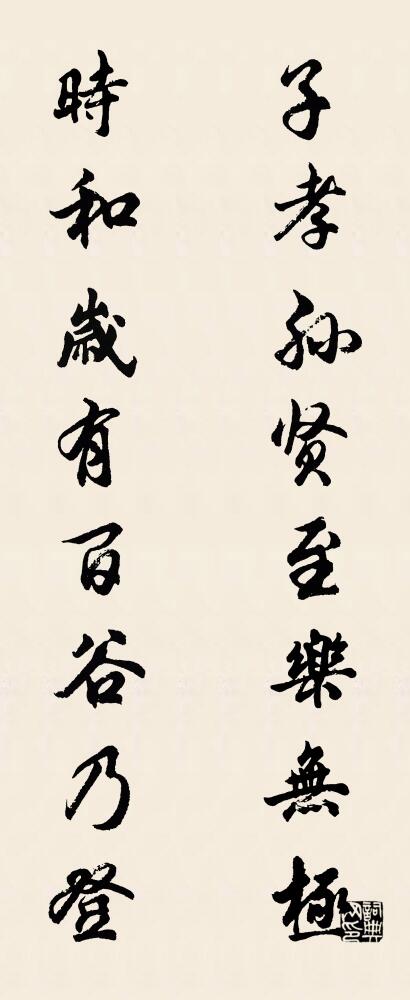 子孝孙贤至樂無極
時和歲有百谷乃登